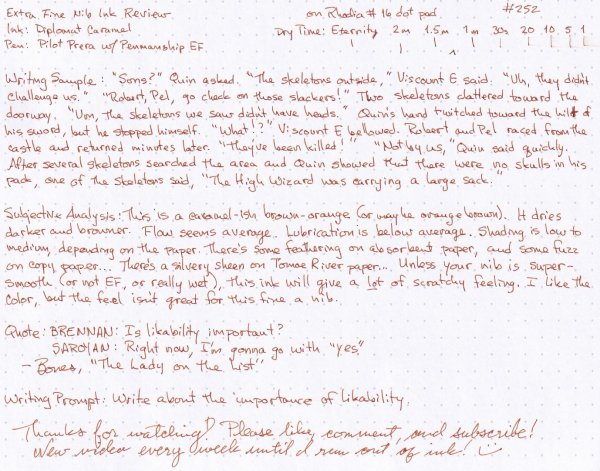 Extra Fine Nib Ink Review on Rhodia #16 dot pad #252
Ink: Diplomat Caramel Dry Time: Eternity 2m 1.5m 1m 30s 20 10 5 1
Pen: Pilot Prera w/ Penmanship EF.
Writing Sample: "Sons?" Quin asked. "The skeletons outside," Viscount E said. "Uh, they didn't
challenge us." "Robert, Pel, go check on those slackers!" Two skeletons clattered toward the
doorway. "Um, the skeletons we saw didn't have heads." Quin's hand twitched toward the hilt of
his sword, but he stopped himself. "What!?" Viscount E bellowed. Robert and Pel raced from the
castle and returned minutes later. "They've been killed!" "Not by us," Quin said quickly.
After several skeletons searched the area and Quin showed that there were no skulls in his
pack, one of the skeletons said, "The High Wizard was carrying a large sack."
Subjective Analysis: This is a caramel-ish brown-orange (or maybe orange brown). It dries
darker and browner. Flow seems average. Lubrication is below average. Shading is low to
medium, depending on the paper. There's some feathering on absorbent paper, and some fuzz
on copy paper... There's a silvery sheen on Tomoe River paper... Unless your nib is super-
smooth (or not EF, or really wet), this ink will give a lot of scratchy feeling. I like the
color, but the feel isn't great for this fine a nib.
Quote: BRENNAN: Is likability important?
SAROYAN: Right now, I'm gonna go with "yes."
- Bones, "The Lady on the List"
Writing Prompt: Write about the importance of likability.
Thanks for watching! Please like, comment, and subscribe!
New video every week until I run out of ink!